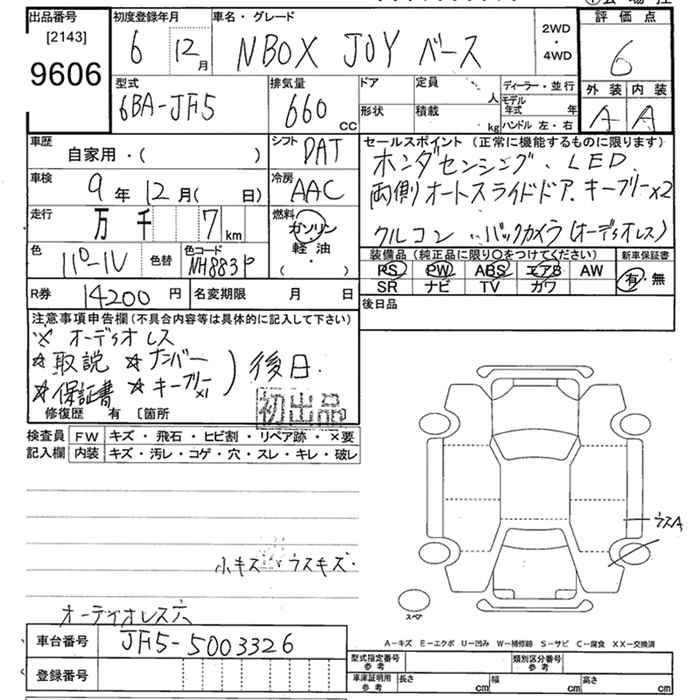 出品番号
[2143]
9606
初度登録年月
6 12月
車名・グレード
NBOX JOY ベース
2WD
・
4WD
評価点
6
外装 内装
A A
型式
6BA-JF5
排気量
660 cc
ドア
定員
人
形状
積載
kg
ディーラー・並行
モデル年式 年
ハンドル 左・右
車歴
自家用・( )
シフト
DAT
車検
9年12月( 日)
冷房
AAC
走行
万 千 7km
燃料
ガソリン
軽油
( ・ )
色
パール
色替
色コード
NH883P
R券
14200円
名変期限 月 日
セールスポイント (正常に機能するものに限ります)
ホンダセンシング、LED.
両側オートスライドドア.キーフリーx2
クルコン バックカメラ(オーディオレス)
装備品(純正品に限り○をつけてください)
新車保証書
PS PW ABS エアB AW
SR ナビ TV ガワ
有・無
後日品
注意事項申告欄(不具合内容等は具体的に記入して下さい)
※ オーディオレス
☆取説 ☆ナンバー
☆保証書 ☆キーフリーx1 ) 後日.
修復歴 有 〔箇所
初出品
検査員 FW キズ・飛石・ヒビ割・リペア跡・×要
記入欄 内装 キズ・汚レ・コゲ・穴・スレ・キレ・破レ
ウスA
小キズ ウスキズ・
スペア
オーディオレス穴
車台番号 JF5-5003326
登録番号
A-キズ E-エクボ U-凹み W-補修跡 S-サビ C-腐食 XX-交換済
型式指定番号 参考
類別区分番号 参考
車庫証明用 参考
長さ cm
幅 cm
高さ cm